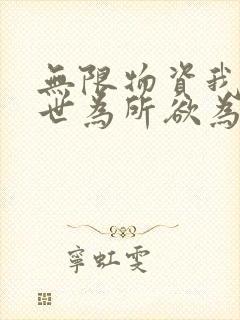 無限物資我
世為所欲為
寧虹雯